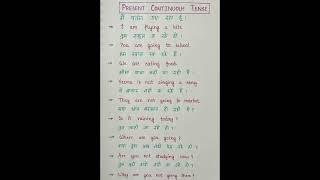 PRESENT CONTINUOUS TENSE
मैं पतंग उड़ा रहा हूँ।
→ I am flying a kite.
तुम स्कूल जा रहे हो।
→ You are going to school.
हम खाना खा रहे हैं।
→ We are eating food.
सीमा गाना नहीं गा रही है।
→ Seema is not singing a song.
वे बाजार नहीं जा रहे हैं।
→ They are not going to market.
क्या आज बारिश हो रही है?
→ Is it raining today?
तुम कहाँ जा रहे हो?
→ Where are you going?
क्या तुम अब नहीं पढ़ रहे हो?
→ Are you not studying now?
तुम वहाँ क्यों नहीं जा रहे हो?
→ Why are you not going there?